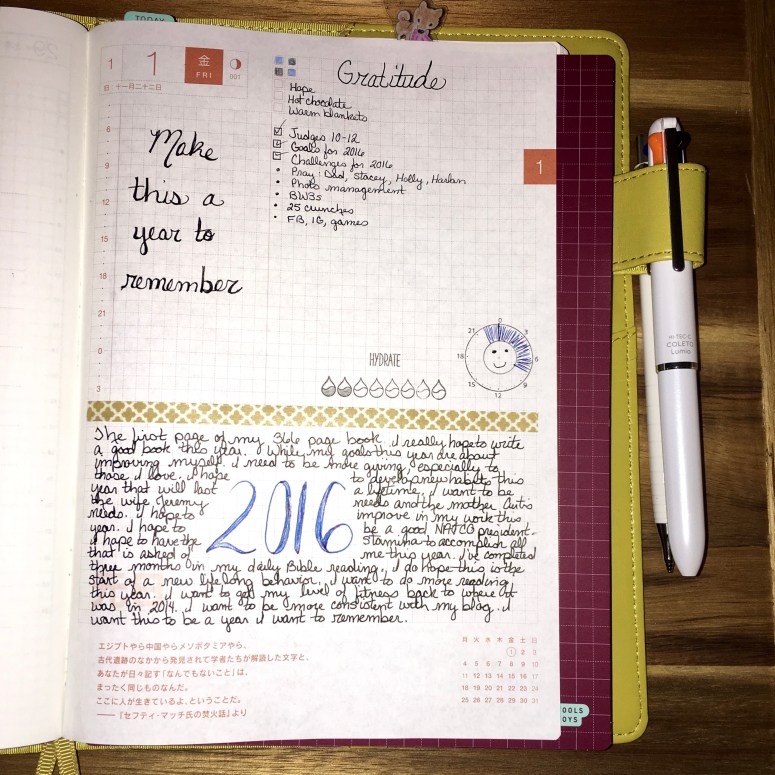 TODAY
1 1 金 FRI 001
十一月二十二日
Gratitude
Hope
Hot chocolate
Warm blankets
Judges 10-12
Goals for 2016
Challenges for 2016
Pray: Dad, Stacey, Holly, Harlan
Photo management
BWBs
25 crunches
FB, IG, games
Make
this a
year to
remember
1
6
9
12
15
18
21
0
3
21 0 3
18 6
15 12 9
HYDRATE
The first page of my 366 page book. I really hope to write
a good book this year. While my goals this year are about
improving myself. I need to be more giving, especially to
those I love. I hope to develop new habits this
year that will last a lifetime. I want to be
the wife Jeremy needs and the mother
needs. I hope to improve in my work this
year. I hope to be a good president.
I hope to have the stamina to accomplish all
that is asked of me this year. I've completed
three months in my daily Bible reading. I do hope this is the
start of a new lifelong behavior. I want to do more reading
this year. I want to get my level of fitness back to where it
was in 2014. I want to be more consistent with my blog. I
want this to be a year I want to remember.
2016
エジプトやら中国やらメソポタミアやら、
古代遺跡のなかから発見されて学者たちが解読した文字と、
あなたが日々記す「なんでもないこと」は、
まったく同じものなんだ。
ここに人が生きているよ、ということだ。
——『セフティ・マッチ氏の焚火話』より
月 火 水 木 金 土 日
1 2 3
4 5 6 7 8 9 10
11 12 13 14 15 16 17
18 19 20 21 22 23 24
25 26 27 28 29 30 31
OOLS
OYS
HI-TEC-C
COLETO
Lumio